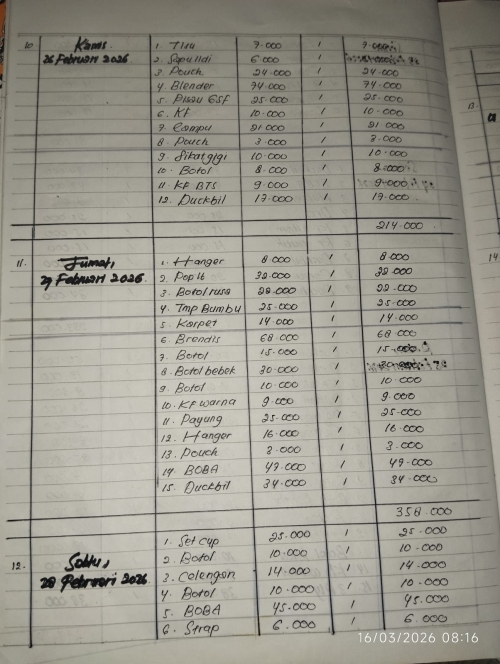 10. Kamis 1. Tisu 7.000 1 7.000
26 Februari 2026 2. Sapu lidi 6.000 1
3. Pouch 24.000 1 24.000
4. Blender 74.000 1 74.000
5. Pisau GSF 25.000 1 25.000
6. KF 10.000 1 10.000
7. Lampu 21.000 1 21.000
8. Pouch 3.000 1 3.000
9. Sikat gigi 10.000 1 10.000
10. Botol 8.000 1 8.000
11. KF BTS 9.000 1 9.000
12. Duckbil 17.000 1 17.000
214.000
11. Jumat, 1. Hanger 8.000 1 8.000
27 Februari 2026. 2. Pop It
3. Botol rusa
4. Tmp Bumbu 25.000 1 25.000
5. Karpet 14.000 1 14.000
6. Brendis 68.000 1 68.000
7. Botol 15.000 1 15.000
8. Botol bebek 30.000 1 30.000
9. Botol 10.000 1 10.000
10. KF warna 9.000 1 9.000
11. Payung 25.000 1 25.000
12. Hanger 16.000 1 16.000
13. Pouch 3.000 1 3.000
14. BOBA 47.000 1 47.000
15. Duckbil 34.000 1 34.000
358.000
12. Sabtu, 1. Set cup 25.000 1 25.000
28 Februari 2026. 2. Botol 10.000 1 10.000
3. Celengan 14.000 1 14.000
4. Botol 10.000 1 10.000
5. BOBA 45.000 1 45.000
6. Strap 6.000 1 6.000
13.
14
16/03/2026 08:16